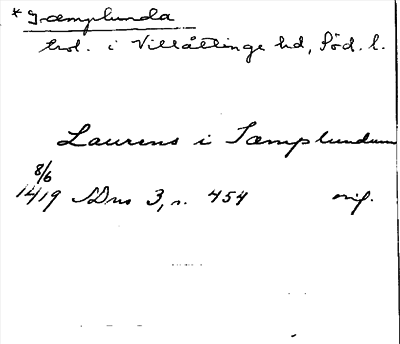 * Iæmplunda
trol. i Villåttinge hd, Söd. l.
Laurens i Iæmplundum
8/6
1419 SDns 3, s. 454 orig.